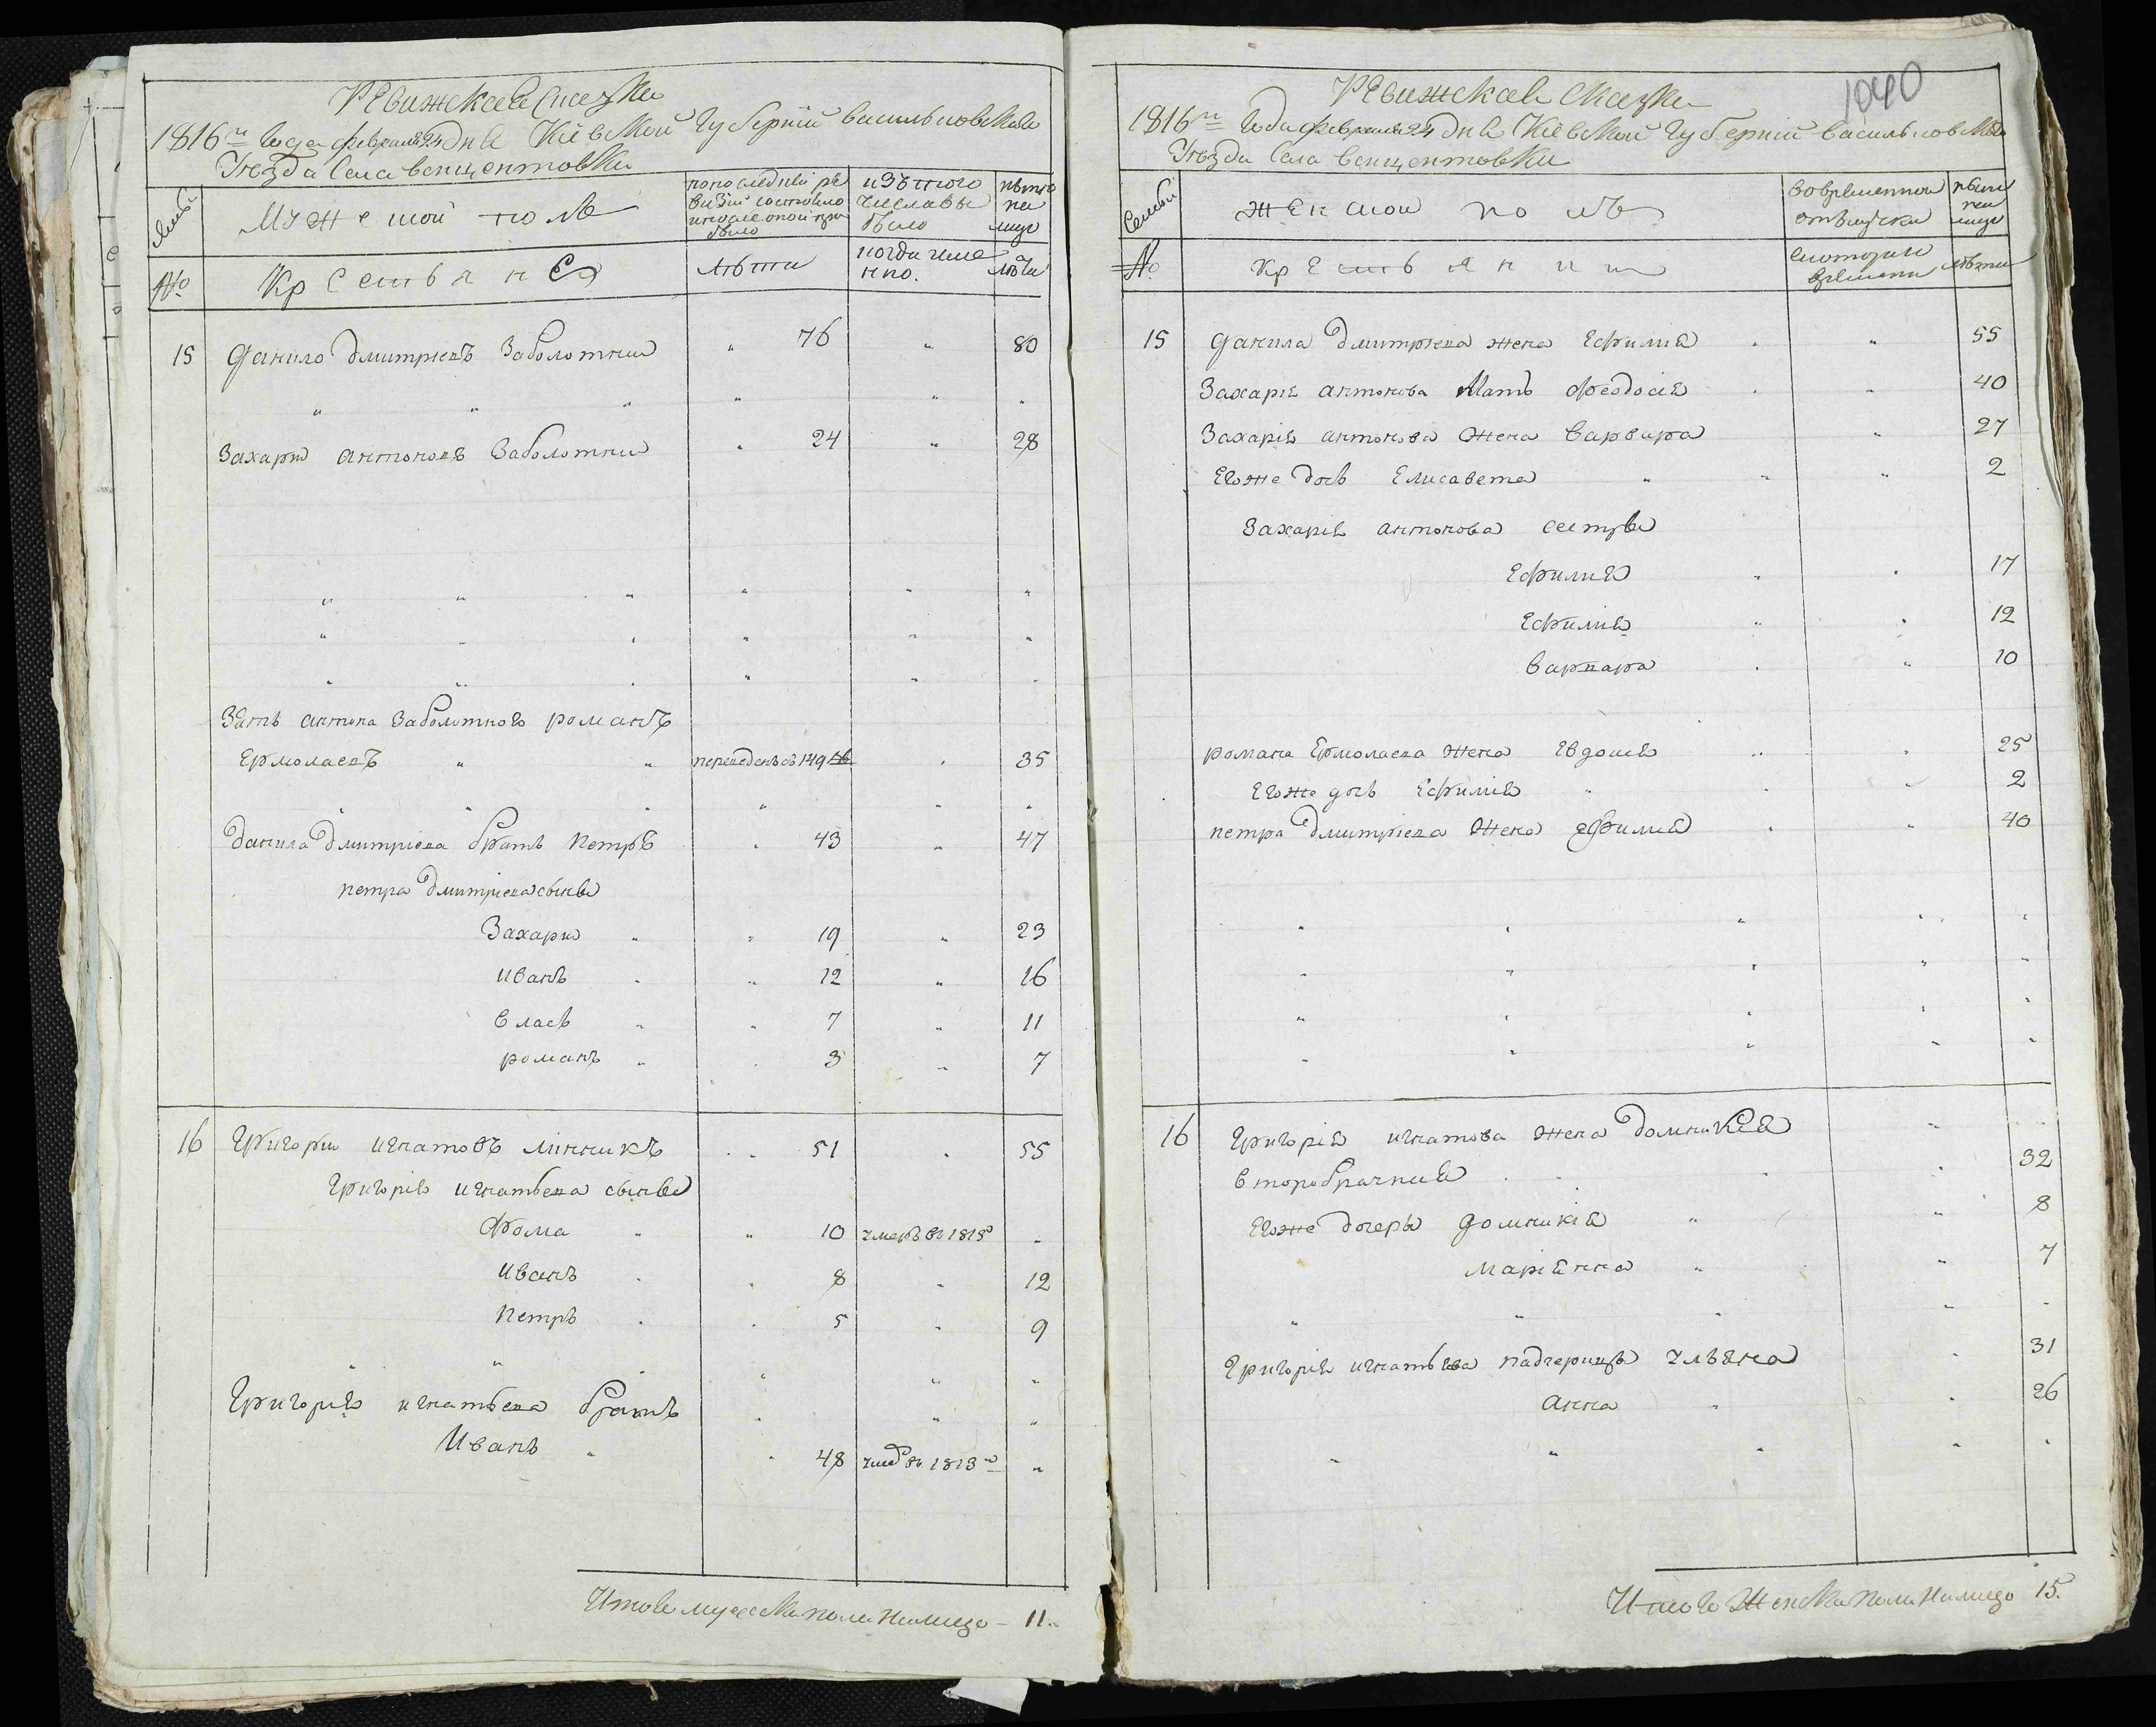 Ревижская Сказка
1816го Года февраля 24 дня Кіевской Губерніи васильковского
Уезда Села венцентовки
Семьи
Мужеской полъ
по последней ре
визіи состояло
и после оной при
было
изъ того
числа вы
было
ныне
на
лицо
№
Крестьяне
лѣта
когда име
нно.
лѣта
15 Данило Дмитріевъ Заболотный " 76 " 80
" " " " " "
Захарий антоновъ Заболотный " 24 " 28
" " " " " "
" " " " " "
" " " " " "
Зять антона Заболотного романъ
Ермолаевъ " " переведенъ съ 149 " 35
" " " " " "
Данила Дмитріева братъ Петръ " 43 " 47
петра Дмитріева сыны
Захарий " " 19 " 23
иванъ " " 12 " 16
власъ " " 7 " 11
романъ " " 3 " 7
16 Григорий игнатовъ линникъ " " 51 " 55
Григорія игнатьева сыны
Фома " " 10 умеръ въ 1813 "
иванъ " " 8 " 12
Петръ " " 5 " 9
" " " " " "
Григорія игнатьева братъ " " "
Иванъ " " 48 умеръ въ 1813го "
Итого мужеска пола налицо – 11.
1040
Ревижская Сказка
1816го Года февраля 24 дня Кіевской Губерніи васильковского
Уезда Села венцентовки
Семьи
Женской полъ
во временной
отлучки
ныне
на
лицо
№
Крестьянит
с которого
времени
лѣта
15 Данила Дмитріева жена Ефимія " " 55
Захарія антонова Мать Феодосія " " 40
Захарія антонова Жена варвара " 27
Егоже дочь Елисавета " " " 2
Захарія антонова сестры
Ефимия " " 17
Ефимия " " 12
варвара " " 10
романа Ермолаева Жена Евдокия " " 25
Егоже дочь Ефимія " " " 2
петра Дмитріева Жена Ефимия " " 40
" " " " "
" " " " "
" " " " "
" " " " "
16 Григорія игнатова жена Домникія " "
второбрачная " " " " 32
Егоже дочеры Домникія " " 8
Маріянна " " 7
" " " " "
Григорія игнатьева падчерицы ульяна " 31
анна " " 26
" " " " "
Итого Женска пола налицо 15.